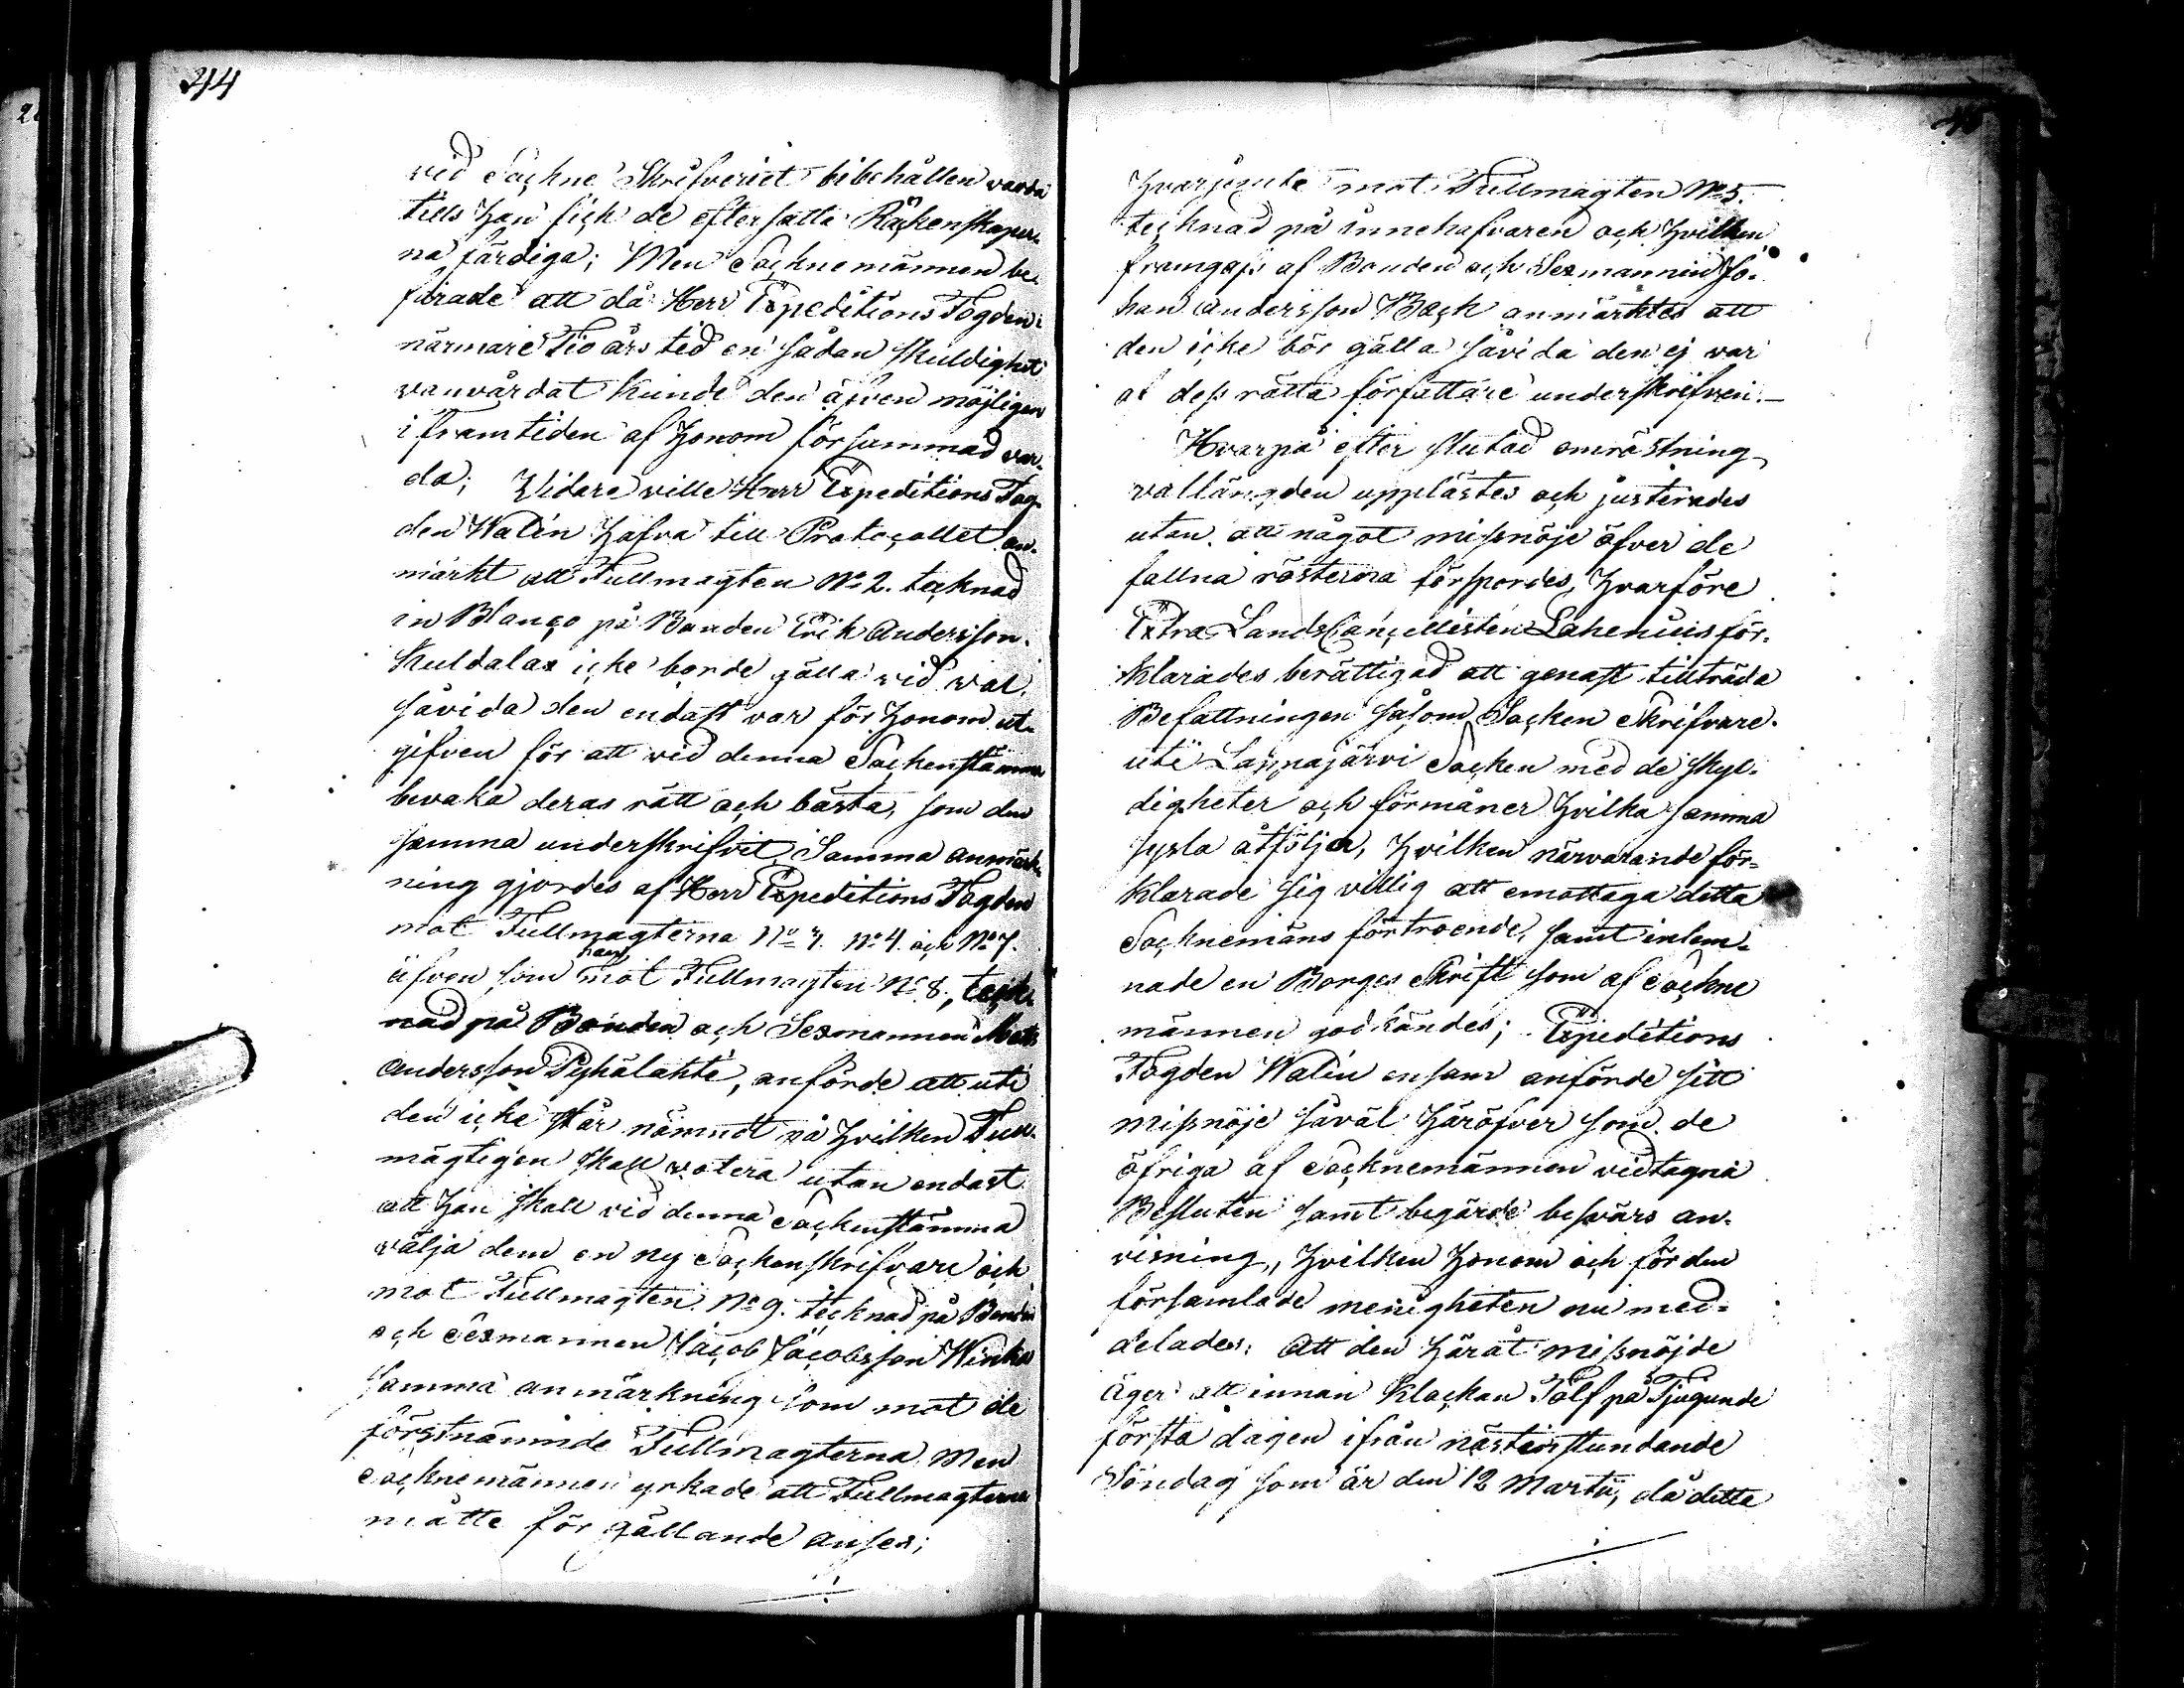 244
vid Sockne Skrifveriet bibehållen varda
tills han fick de eftersatta Räckenskaper-
na färdiga; Men Socknemännen be-
sirade att då Herr Expeditions Fogden i
närmare Tio års tid en sådan skuldighet
vanvårdat kunde den äfven möjligen
i framtiden af honom försummad var-
da; Widare ville Herr Expeditions Fog-
den Walin hafva till Protocollet an-
märkt att Fullmagten No 2. tecknad
in Blanco på Bonden Erik Andersson
Kuldalax icke borde gälla vid val,
såvida den endast var för honom ut-
gifven för att vid denna Sockenstämma
bevaka deras rätt och bästa, som den
samma underskrifvit, Samma anmärk-
ning gjordes af Herr Expeditions Fogden
mot Fullmagterna No 3. No 4. och No 7.
han
äfven som mot Fullmagten No 8, teck-
nad på Bonden och Sexmannen Matts
Andersson Pyhälahti, anförde att uti
den icke står nämndt på hvilken Full-
mägtigen skall votera utan endast
att han skall vid denna Sockenstämma
välja dem en ny Sockenskrifvare och
mot Fullmagten No 9. tecknad på Bonden
och Sexmannen Jacob Jacobsson Winka
samma anmärkning som mot de
förstnämnde Fullmagterna. Men
Socknemännen yrkade att Fullmagterna
måtte för gällande anses;
hvarjemte mot Fullmagten No 5.
tecknad på innehafvaren och hvilken
framgafs af Bonden och Sexmannen Jo-
han Andersson Back anmärktes att
den icke bör gälla såvida den ej var
af dess rätta författare underskrifven.—
Hvarpå efter slutad omröstning
vallängden upplästes och justerades
utan att något missnöje öfver de
fallna rösterna förspordes, hvarföre
Extra LandsCancellisten Lahenius för-
klarades berättigad att genast tillträda
Befattningen såsom Socken Skrifvare
uti Lappajärvi Socken med de skyl-
digheter och förmåner hvilka samma
sysla åtfölja, hvilken närvarande för-
klarade sig villig att emottaga detta
Socknemäns förtroende, samt inlem-
nade en Borges Skrift som af Sockne
männen godkändes; Expeditions
Fogden Walin ensam anförde sitt
missnöje såväl häröfver som de
öfriga af Socknemännen vidtagna
Besluten samt begärde besvärs an-
visning, hvilken honom och för den
församlade menigheten nu med-
delades: Att den häråt missnöjde
äger att innan Klockan Tolf på Tjugunde
första dagen ifrån nästinstundande
Söndag som är den 12 Martii, då detta